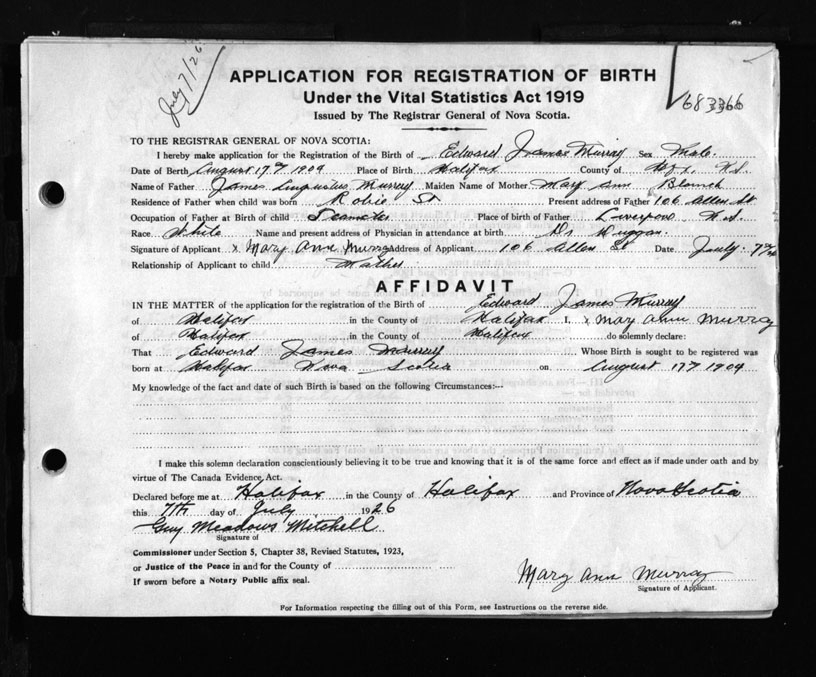 July 7/26
APPLICATION FOR REGISTRATION OF BIRTH
Under the Vital Statistics Act 1919
683366
Issued by The Registrar General of Nova Scotia.
TO THE REGISTRAR GENERAL OF NOVA SCOTIA:
I hereby make application for the Registration of the Birth of Edward James Murray Sex Male
Date of Birth August 17th 1904 Place of Birth Halifax County of Hfx. N.S.
Name of Father James Augustus Murray Maiden Name of Mother Mary Ann
Residence of Father when child was born Robie St Present address of Father 106 Allen St
Occupation of Father at Birth of child Teamster Place of birth of Father Liverpool N.S.
Race White Name and present address of Physician in attendance at birth Dr Duggan
Signature of Applicant x Mary Ann Murray Address of Applicant 106 Allen St Date July 7th
Relationship of Applicant to child Mother
AFFIDAVIT
IN THE MATTER of the application for the registration of the Birth of Edward James Murray
of Halifax in the County of Halifax I, x Mary Ann Murray
of Halifax in the County of Halifax do solemnly declare:
That Edward James Murray Whose Birth is sought to be registered was
born at Halifax Nova Scotia on August 17th 1904
My knowledge of the fact and date of such Birth is based on the following Circumstances:--
I make this solemn declaration conscientiously believing it to be true and knowing that it is of the same force and effect as if made under oath and by
virtue of The Canada Evidence Act.
Declared before me at Halifax in the County of Halifax and Province of Nova Scotia
this 7th day of July 1926
Guy Meadows Mitchell
Signature of
Commissioner under Section 5, Chapter 38, Revised Statutes, 1923,
or Justice of the Peace in and for the County of
If sworn before a Notary Public affix seal.
Mary Ann Murray
Signature of Applicant.
For Information respecting the filling out of this Form, see Instructions on the reverse side.